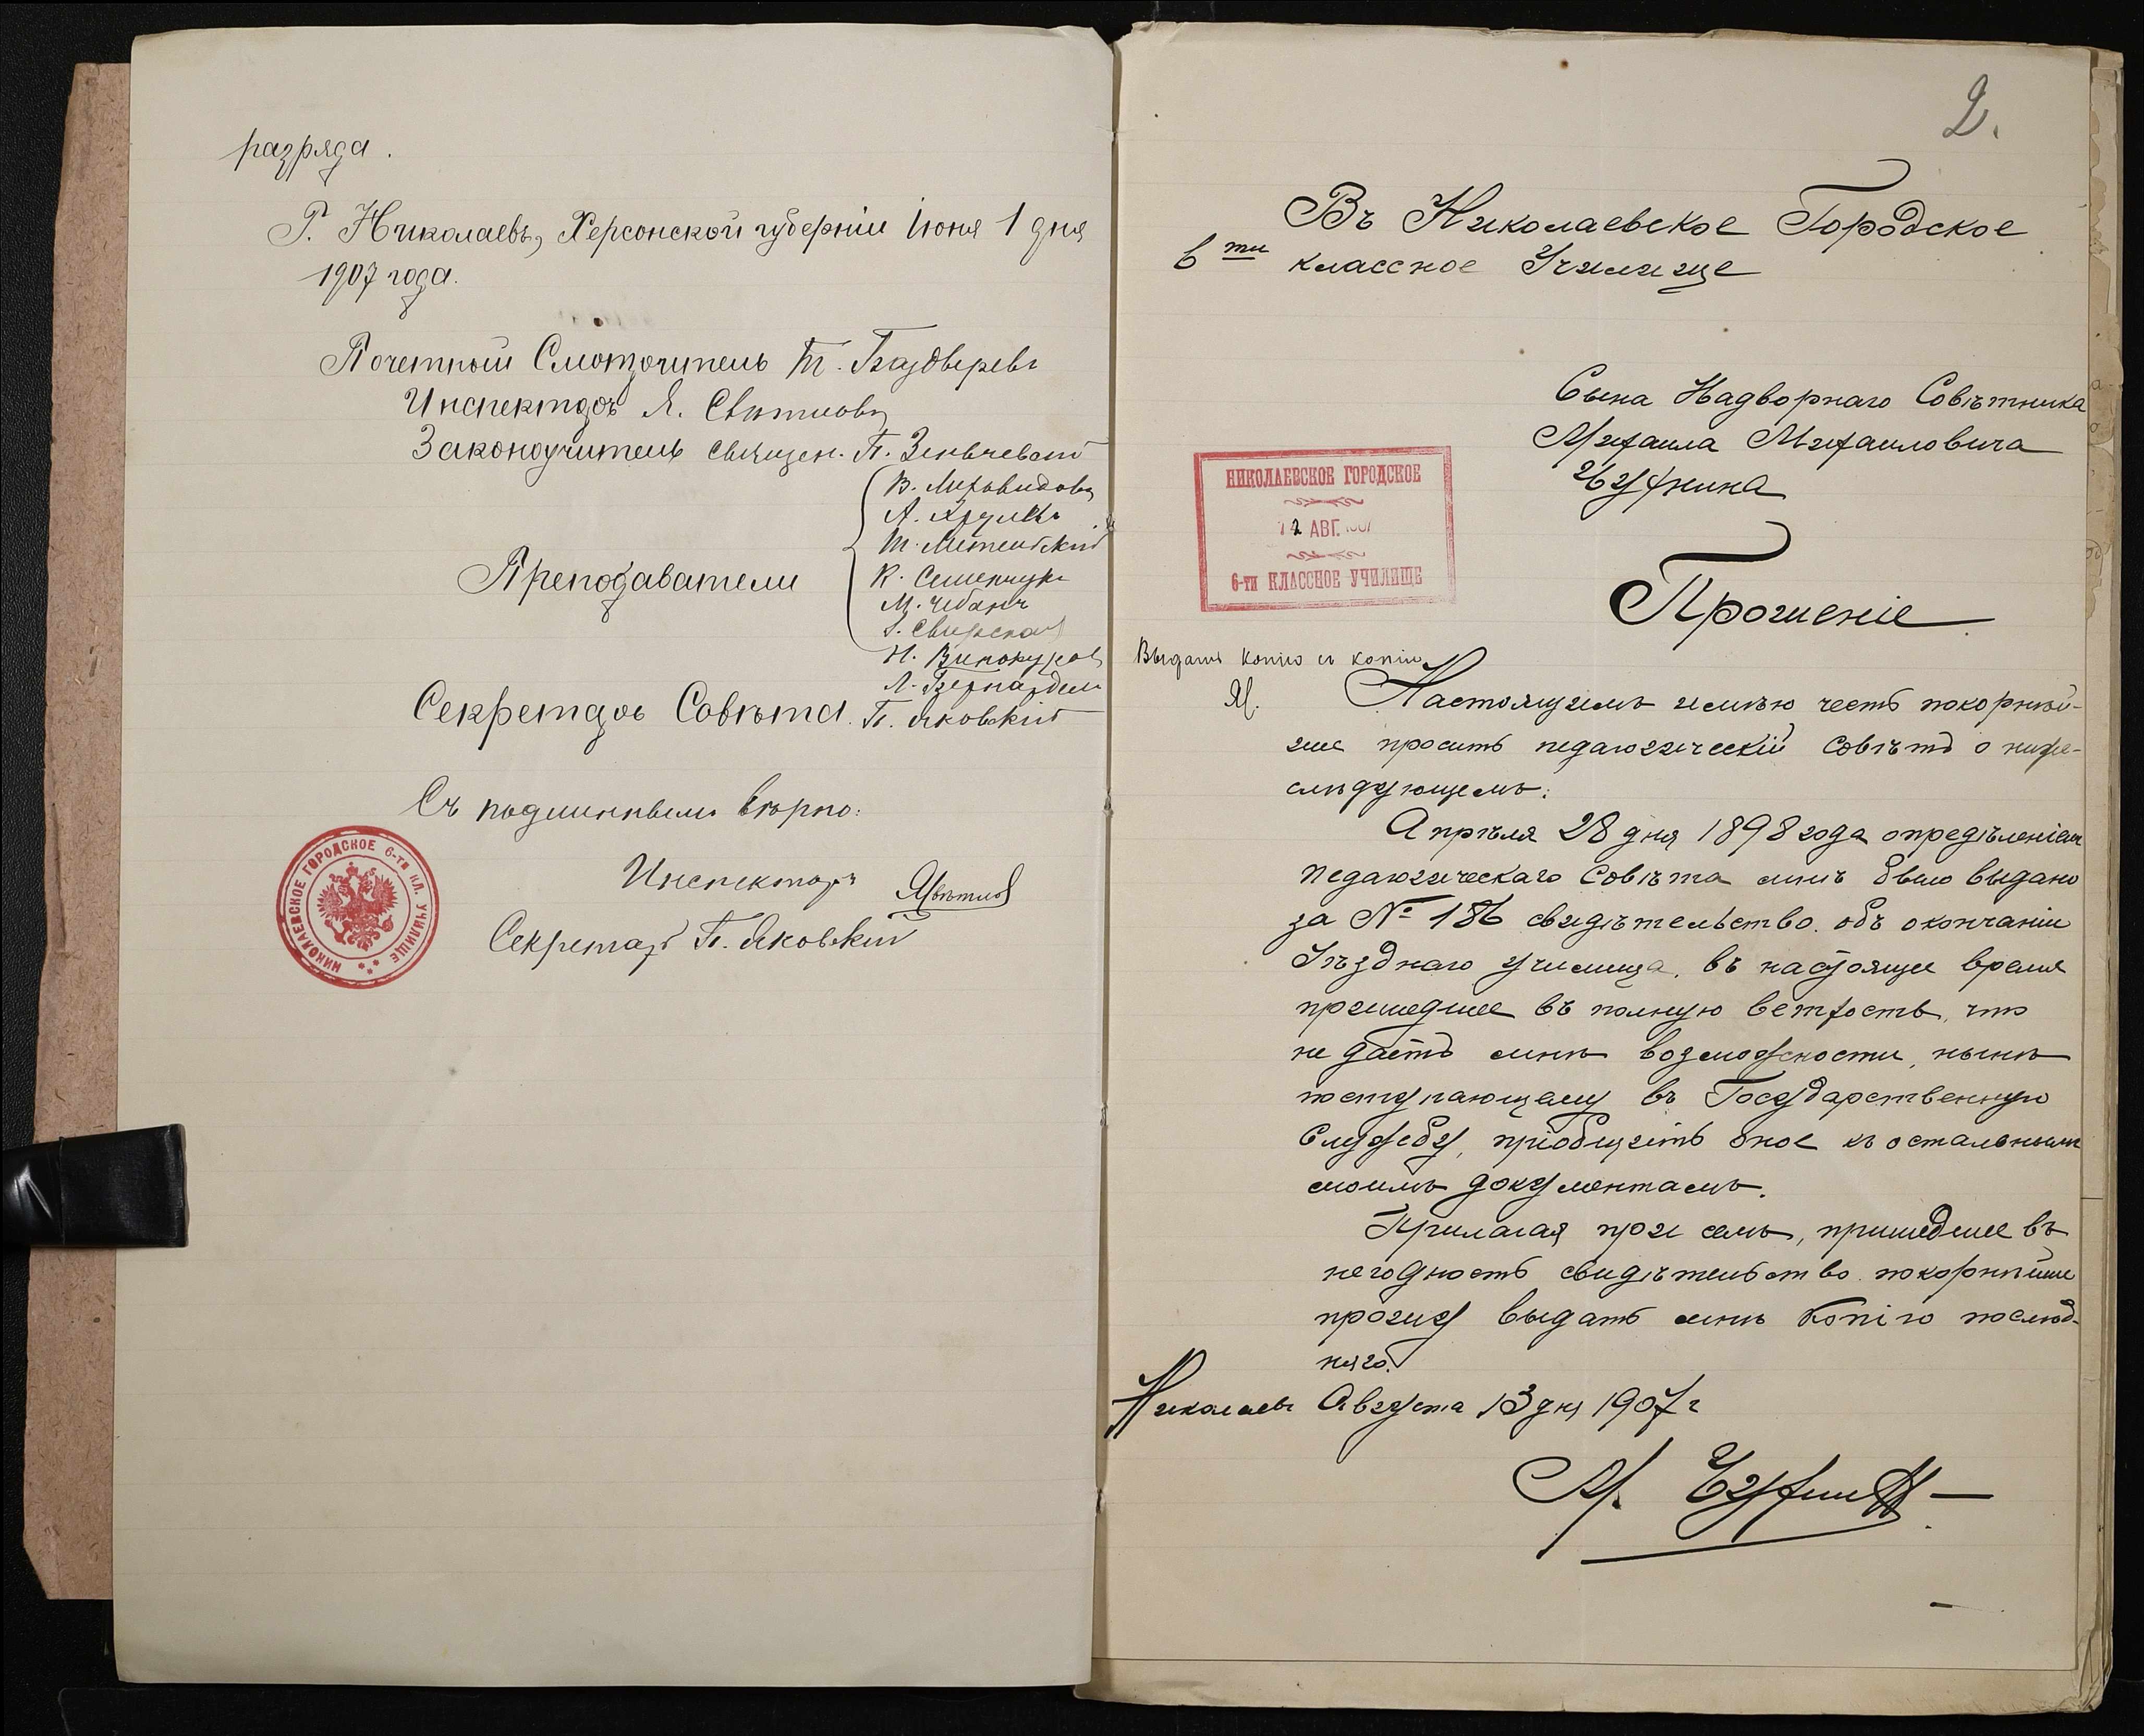 разряда.
Г. Николаевъ, Херсонской губерніи Іюня 1 дня
1907 года.
Почетный Смотритель
Инспекторъ Я. Свѣтловъ
Законоучитель священ. П.
Преподаватели
К. Семенчукъ
М. Чебанъ
Н. Винокуровъ
Секретарь Совѣта П. Яковскій
Съ подлиннымъ вѣрно:
Инспекторъ Я Свѣтловъ
Секретарь П. Яковскій
НИКОЛАЕВСКОЕ ГОРОДСКОЕ 6-ТИ КЛ. УЧИЛИЩЕ
2.
Въ Николаевское Городское
6ти классное Училище
Сына Надворнаго Совѣтника
Михаила Михаиловича
Чухнина
НИКОЛАЕВСКОЕ ГОРОДСКОЕ
АВГ.
6-ти КЛАССНОЕ УЧИЛИЩЕ
Прошеніе
Выдать копію съ копіи
Настоящимъ имѣю честь покорнѣй-
ше просить педагогическій Совѣтъ о ниже-
слѣдующемъ:
Апрѣля 28 дня 1898 года опредѣленіемъ
Педагогическаго Совѣта мнѣ было выдано
за № 186 свидѣтельство объ окончаніи
Уѣзднаго училища, въ настоящее время
пришедшее въ полную ветхость, что
не даетъ мнѣ возможности, нынѣ
поступающему въ Государственную
Службу, пріобщить оное къ остальнымъ
моимъ документамъ.
Прилагая при семъ, пришедшее въ
негодность свидѣтельство покорнѣйше
прошу выдать мнѣ копію послѣд-
няго.
Николаевъ Августа 13 дня 1907 г
М. Чухнинъ